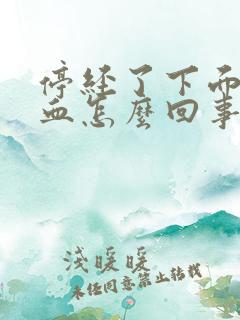 停經了下面
血怎麼回事
淺暖暖
未经同意禁止转载